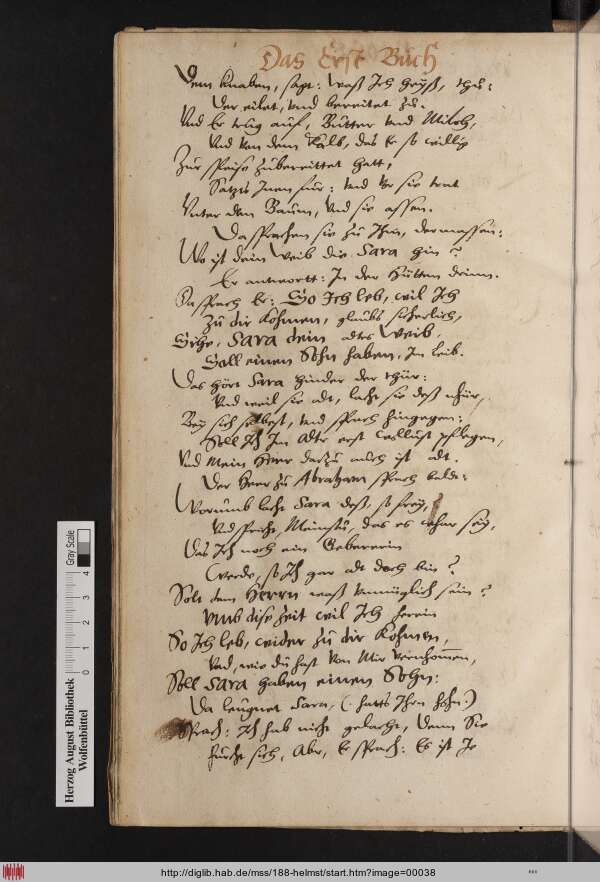 Das Erst Buch
Dem knaben, sagt: waß Ich heyß, thu:
Der eilet, vnd bereitet zu.
Vnd Er trug auf, Butter vnd Milch,
Vnd von dem Kalb, das Er so willig
Zur speise zubereittet hatt,
Satzts Inen fur: vnd Er sie trat
Vnter den Baum, Vnd sie assen.
Da sprachen sie zu Ihm, dermassen:
Wo ist dein Weib die Sara hin?
Er antwortt: In der Hütten drinn.
Da sprach Er: So Ich leb, wil Ich
Zu dir kohmen, glaubs sicherlich,
Sihe, Sara dein altes Weib,
Soll einen Sohn haben, Im leib.
Das hört Sara hinder der thür:
Vnd weil sie alt, lacht sie deß
Bey sich selbest, vnd sprach hingegen:
Soll Ich Im Altr erst wollust pflegen,
Vnd Mein Herr darzu auch ist alt.
Der Herr zu Abraham sprach balde:
Worumb lacht Sara deß, so frey,
Vnd spricht, Meinstu, das es wahr sey,
Das Ich noch ein Gebererin
Werde, so Ich gar alt doch bin?
Solt dem Herrn waß vnmüglich sein?
Vmb dise zeit wil Ich herein
So Ich leb, wider zu dir kohmen,
Vnd, wie du hast von Mir vernohmen,
Soll Sara haben einen Sohn:
Da leugnet Sara, (: hatts Ihrn hohn:)
Sprach: Ich hab nicht gelacht, denn Sie
furcht sich, Abr, Er sprach: Es ist Je
Herzog August Bibliothek
Wolfenbüttel
0 1 2 3 4
Gray Scale
http://diglib.hab.de/mss/188-helmst/start.htm?image=00038